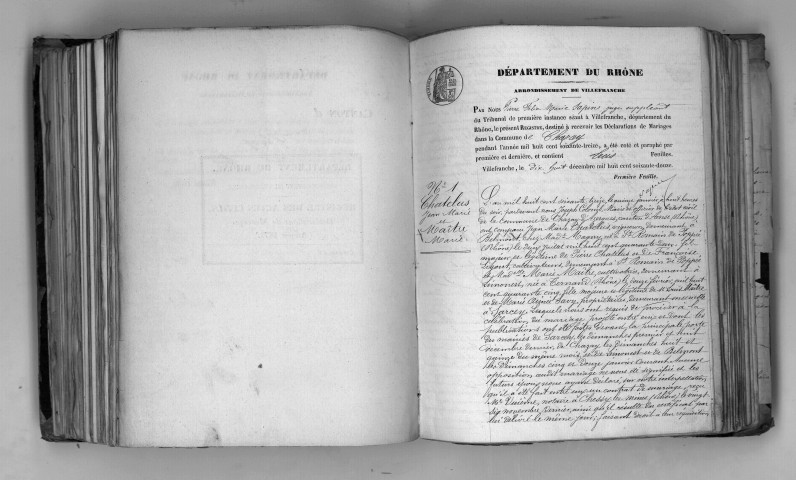 DÉPARTEMENT DU RHÔNE
ARRONDISSEMENT DE VILLEFRANCHE
PAR NOUS Pierre Marie juge suppléant
du Tribunal de première instance séant à Villefranche, département du
Rhône, le présent REGISTRE, destiné à recevoir les Déclarations de Mariages
dans la Commune de Chazay
pendant l'année mil huit cent soixante-treize, a été coté et paraphé par
première et dernière, et contient trois Feuilles.
Villefranche, le dix huit décembre mil huit cent soixante-douze.
Première Feuille.
No 1
Chatelus
Jean Marie
et
Maître
Marie
L'an mil huit cent soixante treize, le janvier à huit heures
du soir, pardevant nous Joseph Maire et officier de l'état civil
de la commune de Chazay d'Azergues, canton d'Anse (Rhône)
ont comparu Jean Marie Chatelus, vigneron, demeurant à
Belmont, chez Mad. Magny, né à St Romain de Popey
(Rhône) le juillet mil huit cent quarante fils
majeur et légitime de Pierre Chatelus et de Françoise
cultivateurs demeurant à St Romain de Popey
Et Mad. Marie Maître, demeurant à
Limonest, née à Ternand (Rhône) le onze février mil huit
cent quarante cinq, fille majeure et légitime de Louis Maître
et de Marie Savy, propriétaires, demeurant ensemble
à Sarcey. Lesquels nous ont requis de procéder à la
célébration du mariage projeté entre eux et dont les
publications ont été faites devant la principale porte
des mairies de Sarcey les dimanches premier et huit
décembre dernier, de Chazay les dimanches huit et
quinze du même mois, et de Limonest et de Belmont
les dimanches cinq et douze janvier courant. Aucune
opposition audit mariage ne nous été signifiée et les
futurs époux nous ayant déclaré, sur notre interpellation,
qu'il a été fait entre eux un contrat de mariage reçu
Me notaire à Chessy les mines (Rhône) le vingt
six novembre dernier, ainsi qu'il résulte du certificat par
lui délivré le même jour; faisant droit à leur réquisition,